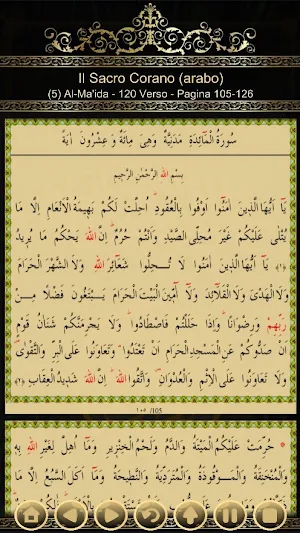 Il Sacro Corano (arabo)
(5) Al-Ma'ida - 120 Verso - Pagina 105-126
سُورَةُ الْمَائِدَةِ مَدَنِيَّةٌ وَهِىَ مِائَةٌ وَعِشْرُونَ اٰيَةً
بِسْمِ اللهِ الرَّحْمٰنِ الرَّحِيمِ
يَا اَيُّهَا الَّذِينَ اٰمَنُوا اَوْفُوا بِالْعُقُودِ اُحِلَّتْ لَكُمْ بَهِيمَةُ الْاَنْعَامِ اِلَّا مَا
يُتْلٰى عَلَيْكُمْ غَيْرَ مُحِلِّى الصَّيْدِ وَاَنْتُمْ حُرُمٌ اِنَّ اللهَ يَحْكُمُ مَا يُرِيدُ
﴿١﴾ يَا اَيُّهَا الَّذِينَ اٰمَنُوا لَا تُحِلُّوا شَعَائِرَ اللهِ وَلَا الشَّهْرَ الْحَرَامَ
وَلَا الْهَدْىَ وَلَا الْقَلَائِدَ وَلَا اٰمِّينَ الْبَيْتَ الْحَرَامَ يَبْتَغُونَ فَضْلًا مِنْ
رَبِّهِمْ وَرِضْوَانًا وَاِذَا حَلَلْتُمْ فَاصْطَادُوا وَلَا يَجْرِمَنَّكُمْ شَنَاٰنُ قَوْمٍ
اَنْ صَدُّوكُمْ عَنِ الْمَسْجِدِ الْحَرَامِ اَنْ تَعْتَدُوا وَتَعَاوَنُوا عَلَى الْبِرِّ وَالتَّقْوٰى
وَلَا تَعَاوَنُوا عَلَى الْاِثْمِ وَالْعُدْوَانِ وَاتَّقُوا اللهَ اِنَّ اللهَ شَدِيدُ الْعِقَابِ ﴿٢﴾
١٠٥ /105
حُرِّمَتْ عَلَيْكُمُ الْمَيْتَةُ وَالدَّمُ وَلَحْمُ الْخِنْزِيرِ وَمَا اُهِلَّ لِغَيْرِ اللهِ بِهِ
وَالْمُنْخَنِقَةُ وَالْمَوْقُوذَةُ وَالْمُتَرَدِّيَةُ وَالنَّطِيحَةُ وَمَا اَكَلَ السَّبُعُ اِلَّا مَا